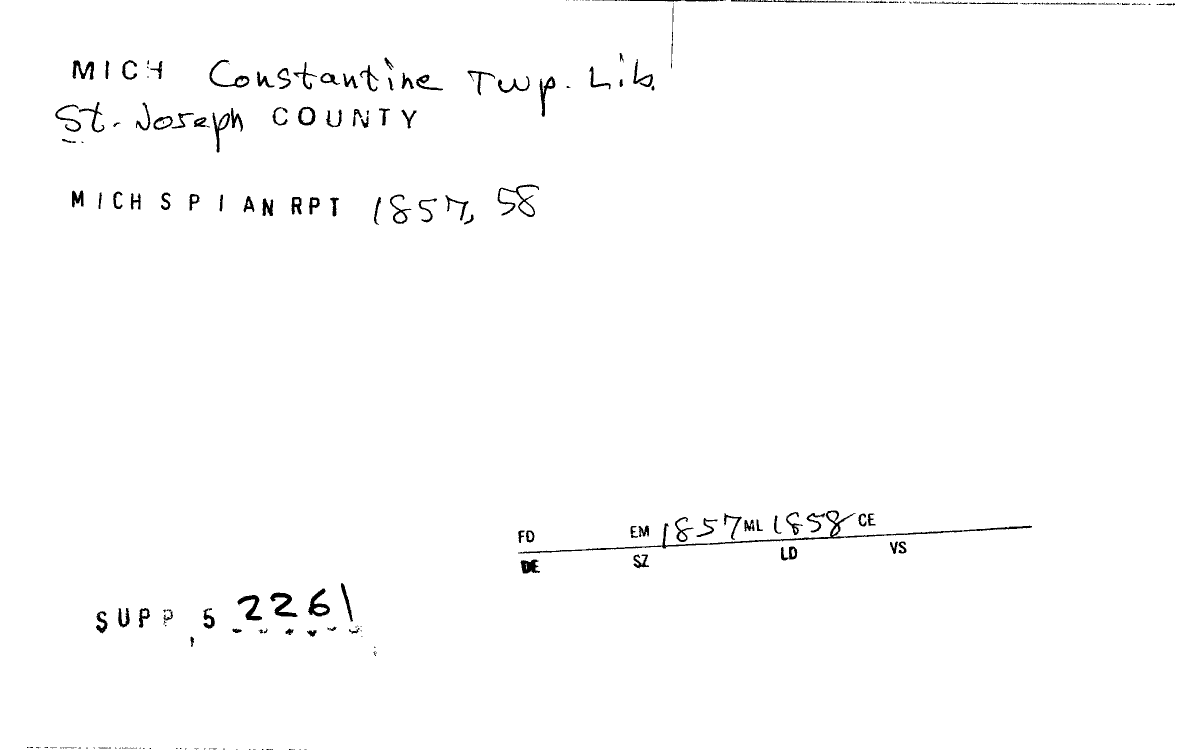 MICH Constantine Twp. Lib.
St. Joseph COUNTY
MICH S P I AN RPT 1857, 58
FD EM 1857 ML 1858 CE
DE SZ LD VS
SUPP, 5 2261